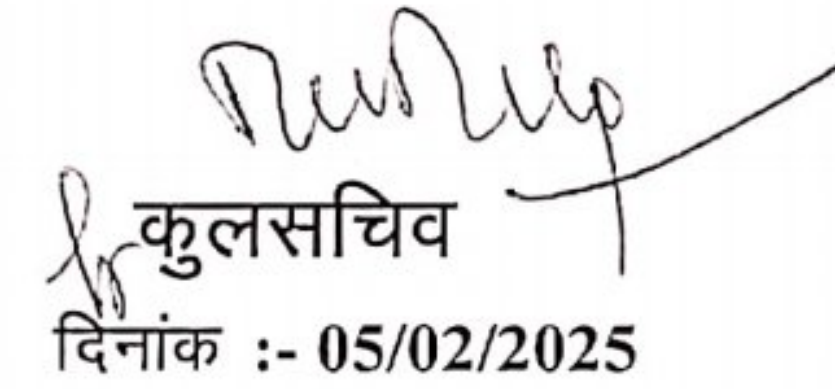 कुलसचिव
दिनांक :- 05/02/2025